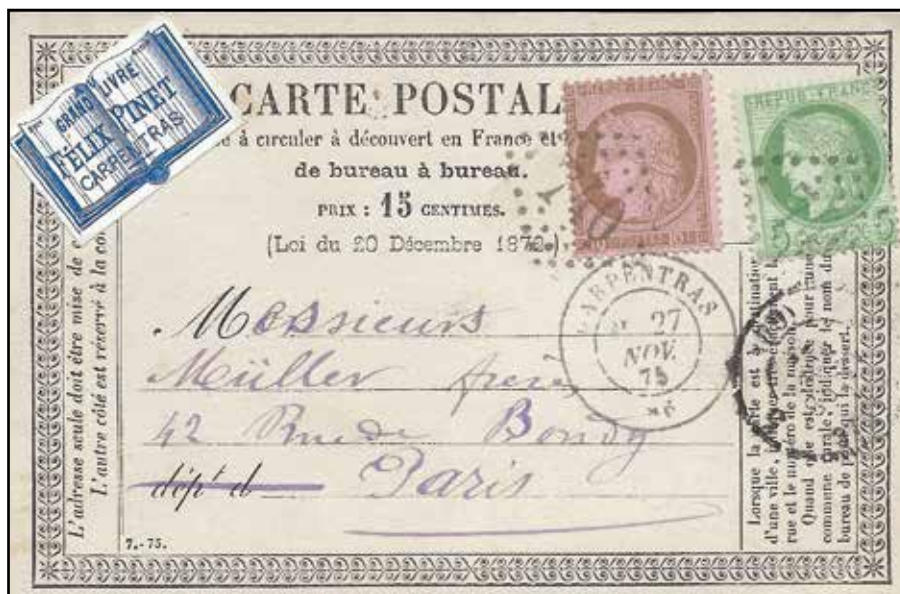 GRAND LIVRE
FÉLIX PINET
CARPENTRAS
CARTE POSTAL
à circuler à découvert en France et
de bureau à bureau.
PRIX : 15 CENTIMES.
(Loi du 20 Décembre 1872.)
REPUB FRANC
CARPENTRAS
27
NOV.
75
Messieurs
Müller frères
42 Rue de Bondy
dépt d Paris
7.-75.
L'adresse seule doit être mise de c
L'autre côté est réservé à la co
Lorsque la carte est à
d'une ville,
rue et le numéro de la maison.
Quand
commune rurale, indiquer le nom du
bureau de qui la dessert.